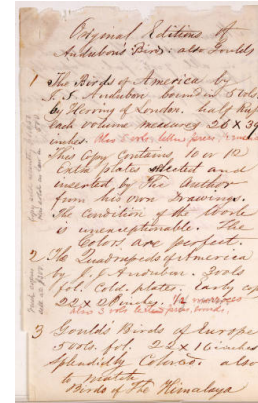 Original Editions of
Audubon's Birds. also Goulds
1 The Birds of America by
J. J. Audubon bound in 5 vols.
by Herring of London. half
each volume measures 26 x 39
inches. also 5 vols letter press,
This Copy Contains 10 or 12
Extra plates selected and
inserted by The Author
from his own Drawings.
The Condition of the work
is unexceptionable. The
Colors are perfect.
2 The Quadrupeds of America
by J. J. Audubon. 2 vols
fol. Cold. plates. early
22 x 28 inches. 1/2 morocco
also 3 vols letter press, bound.
3 Goulds Birds of Europe
5 vols. fol. 22 x 16 inches
Splendidly Colored also
to match
Birds of The Himalaya